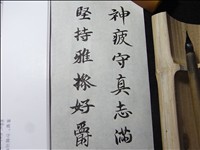 神疲守真志滿
堅持雅操好爵